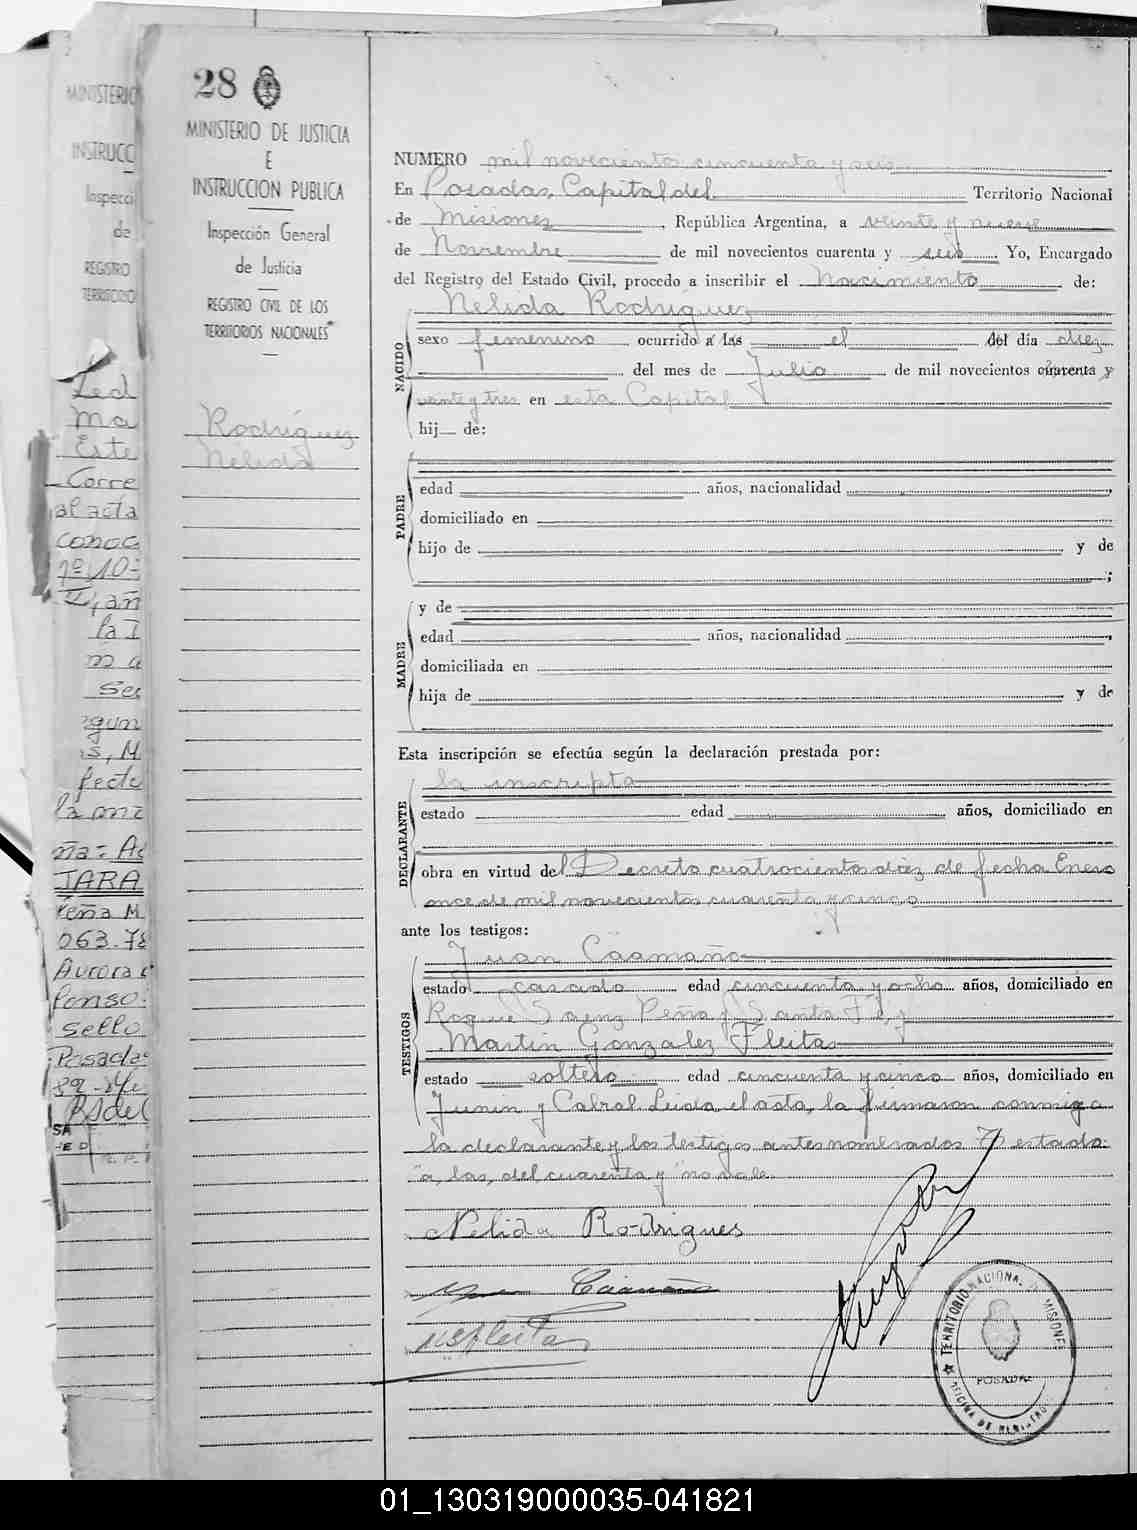 28
MINISTERIO DE JUSTICIA
E
INSTRUCCION PUBLICA
Inspección General
de Justicia
REGISTRO CIVIL DE LOS
TERRITORIOS NACIONALES
Rodríguez
Nélida
NUMERO mil novecientos cincuenta y seis
En Posadas, Capital del Territorio Nacional
de Misiones, República Argentina, a veinte y nueve
de Noviembre de mil novecientos cuarenta y seis Yo, Encargado
del Registro del Estado Civil, procedo a inscribir el Nacimiento de:
NACIDO
Nelida Rodriguez
sexo femenino ocurrido a las el del día diez
del mes de Julio de mil novecientos cuarenta y
veinte y tres en esta Capital
hij de:
PADRE
edad años, nacionalidad
domiciliado en
hijo de y de
;
MADRE
y de
edad años, nacionalidad
domiciliada en
hija de y de
Esta inscripción se efectúa según la declaración prestada por:
DECLARANTE
la inscripta
estado edad años, domiciliado en
obra en virtud del Decreto cuatrocientos diez de fecha Enero
once de mil novecientos cuarenta y cinco
ante los testigos:
TESTIGOS
Juan Caamaño
estado casado edad cincuenta y ocho años, domiciliado en
Roque Saenz Peña y Santa Fé, y
Martin Gonzalez Fleitas
estado soltero edad cincuenta y cinco años, domiciliado en
Junin y Cabral. Leida el acta, la firmaron conmigo
la declarante y los testigos antes nombrados. T) estado:
"a, las, del cuarenta y" no vale.
Nelida Rodrigues
Caamaño
Fleitas
TERRITORIO NACIONAL DE MISIONES
POSADAS
MINISTERIO
INSTRUCC
Inspecci
de
REGISTRO
TERRITORIO
Led
Ma
Este
Corre
al acta
conoc
la
Ser
s, M
fecte
ña: Ac
JARA
Peña M
063.78
Aurora
fonso
Sello
Posadas
01_130319000035-041821